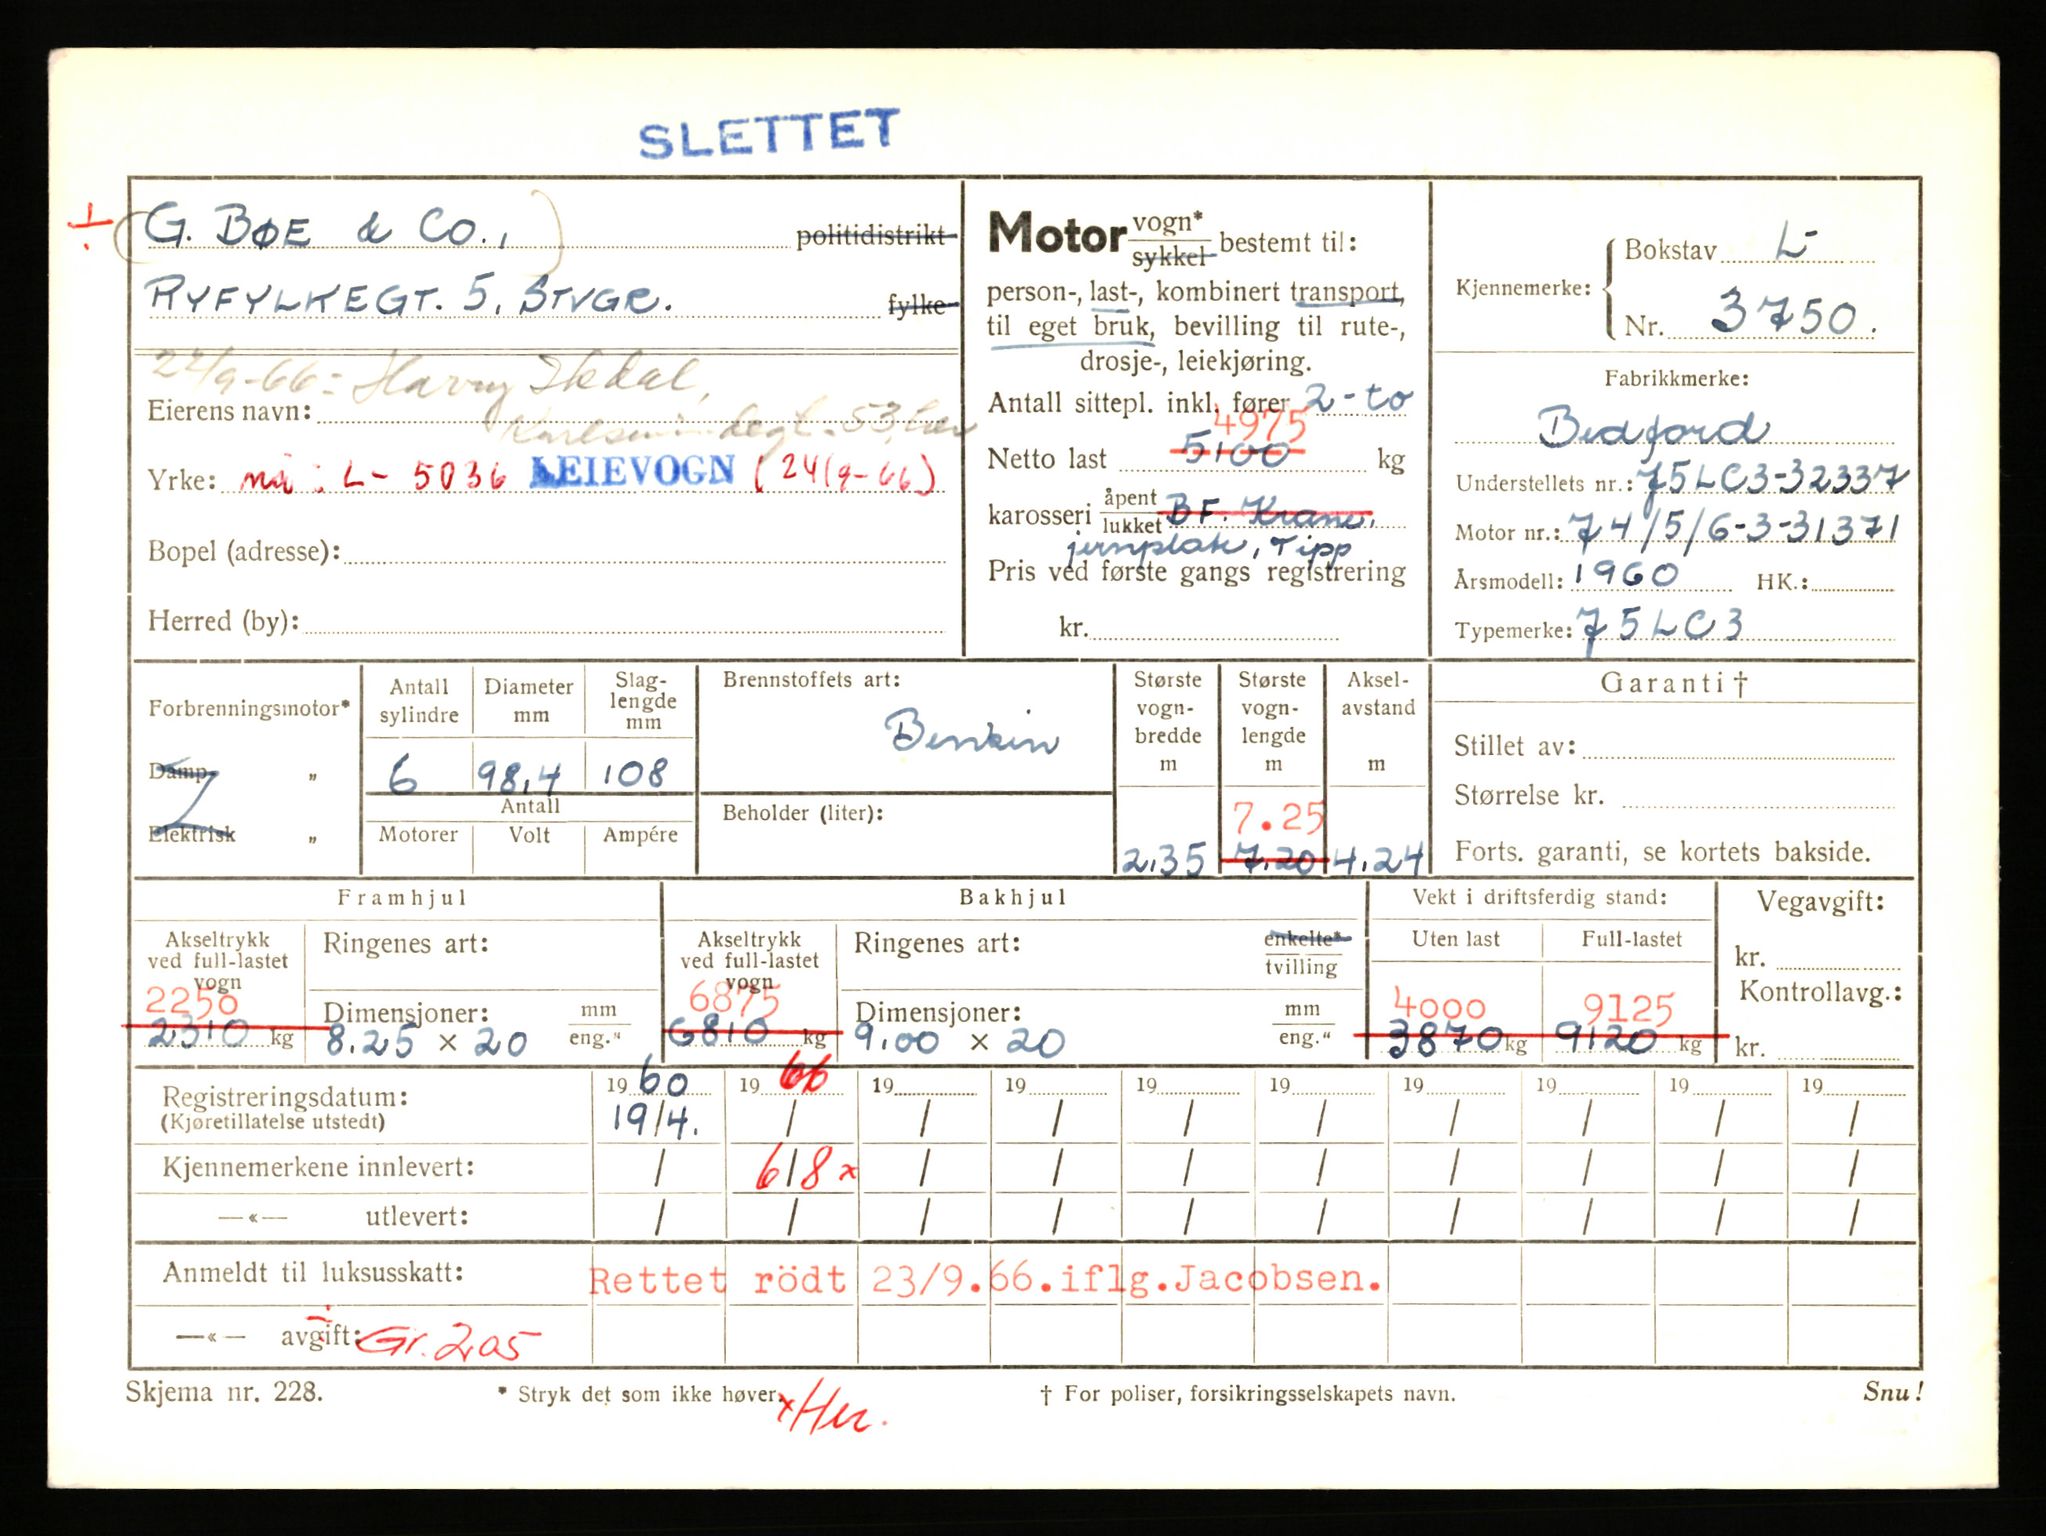 SLETTET
G. BØE & Co., politidistrikt
RYFYLKEGT. 5, STVGR. fylke
24/9-66: Harry
Eierens navn:
53,
Yrke: nå: L- 5036 LEIEVOGN (24/9-66)
Bopel (adresse):
Herred (by):
Motor vogn* sykkel bestemt til:
person-, last-, kombinert transport,
til eget bruk, bevilling til rute-,
drosje-, leiekjøring.
Antall sittepl. inkl. fører 2 - to
4975
Netto last 5100 kg
karosseri åpent lukket BF. Krane.
jernplate, Tipp
Pris ved første gangs registrering
kr.
Kjennemerke: Bokstav L-
Nr. 3750.
Fabrikkmerke:
Bedford
Understellets nr.: 75LC3-32337
Motor nr.: 74/5/6-3-31371
Årsmodell: 1960 HK.:
Typemerke: 75LC3
Forbrenningsmotor*
Damp „
Elektrisk „
Antall sylindre
Diameter mm
Slag-lengde mm
6 98,4 108
Antall
Motorer Volt Ampére
Brennstoffets art:
Benkin
Beholder (liter):
Største vogn-bredde m
2.35
Største vogn-lengde m
7.25
7.20
Aksel-avstand m
4.24
Garanti †
Stillet av:
Størrelse kr.
Forts. garanti, se kortets bakside.
Framhjul
Akseltrykk ved full-lastet vogn
2250
2310 kg
Ringenes art:
Dimensjoner: mm
8.25 × 20 eng."
Bakhjul
Akseltrykk ved full-lastet vogn
6875
6810 kg
Ringenes art: enkelte* tvilling
Dimensjoner: mm
9.00 × 20 eng."
Vekt i driftsferdig stand:
Uten last Full-lastet
4000 9125
3870 kg 9120 kg
Vegavgift:
kr.
Kontrollavg.:
kr.
Registreringsdatum: 19 60 19 66 19 19 19 19 19 19 19 19
(Kjøretillatelse utstedt) 19/4. / / / / / / / / /
Kjennemerkene innlevert: / 6/8 x / / / / / / / /
—«— utlevert: / / / / / / / / / /
Anmeldt til luksusskatt: Rettet rödt 23/9.66.iflg.Jacobsen.
—«— avgift: Gr. 205
Skjema nr. 228. * Stryk det som ikke høver. † For poliser, forsikringsselskapets navn. Snu!
x Her.